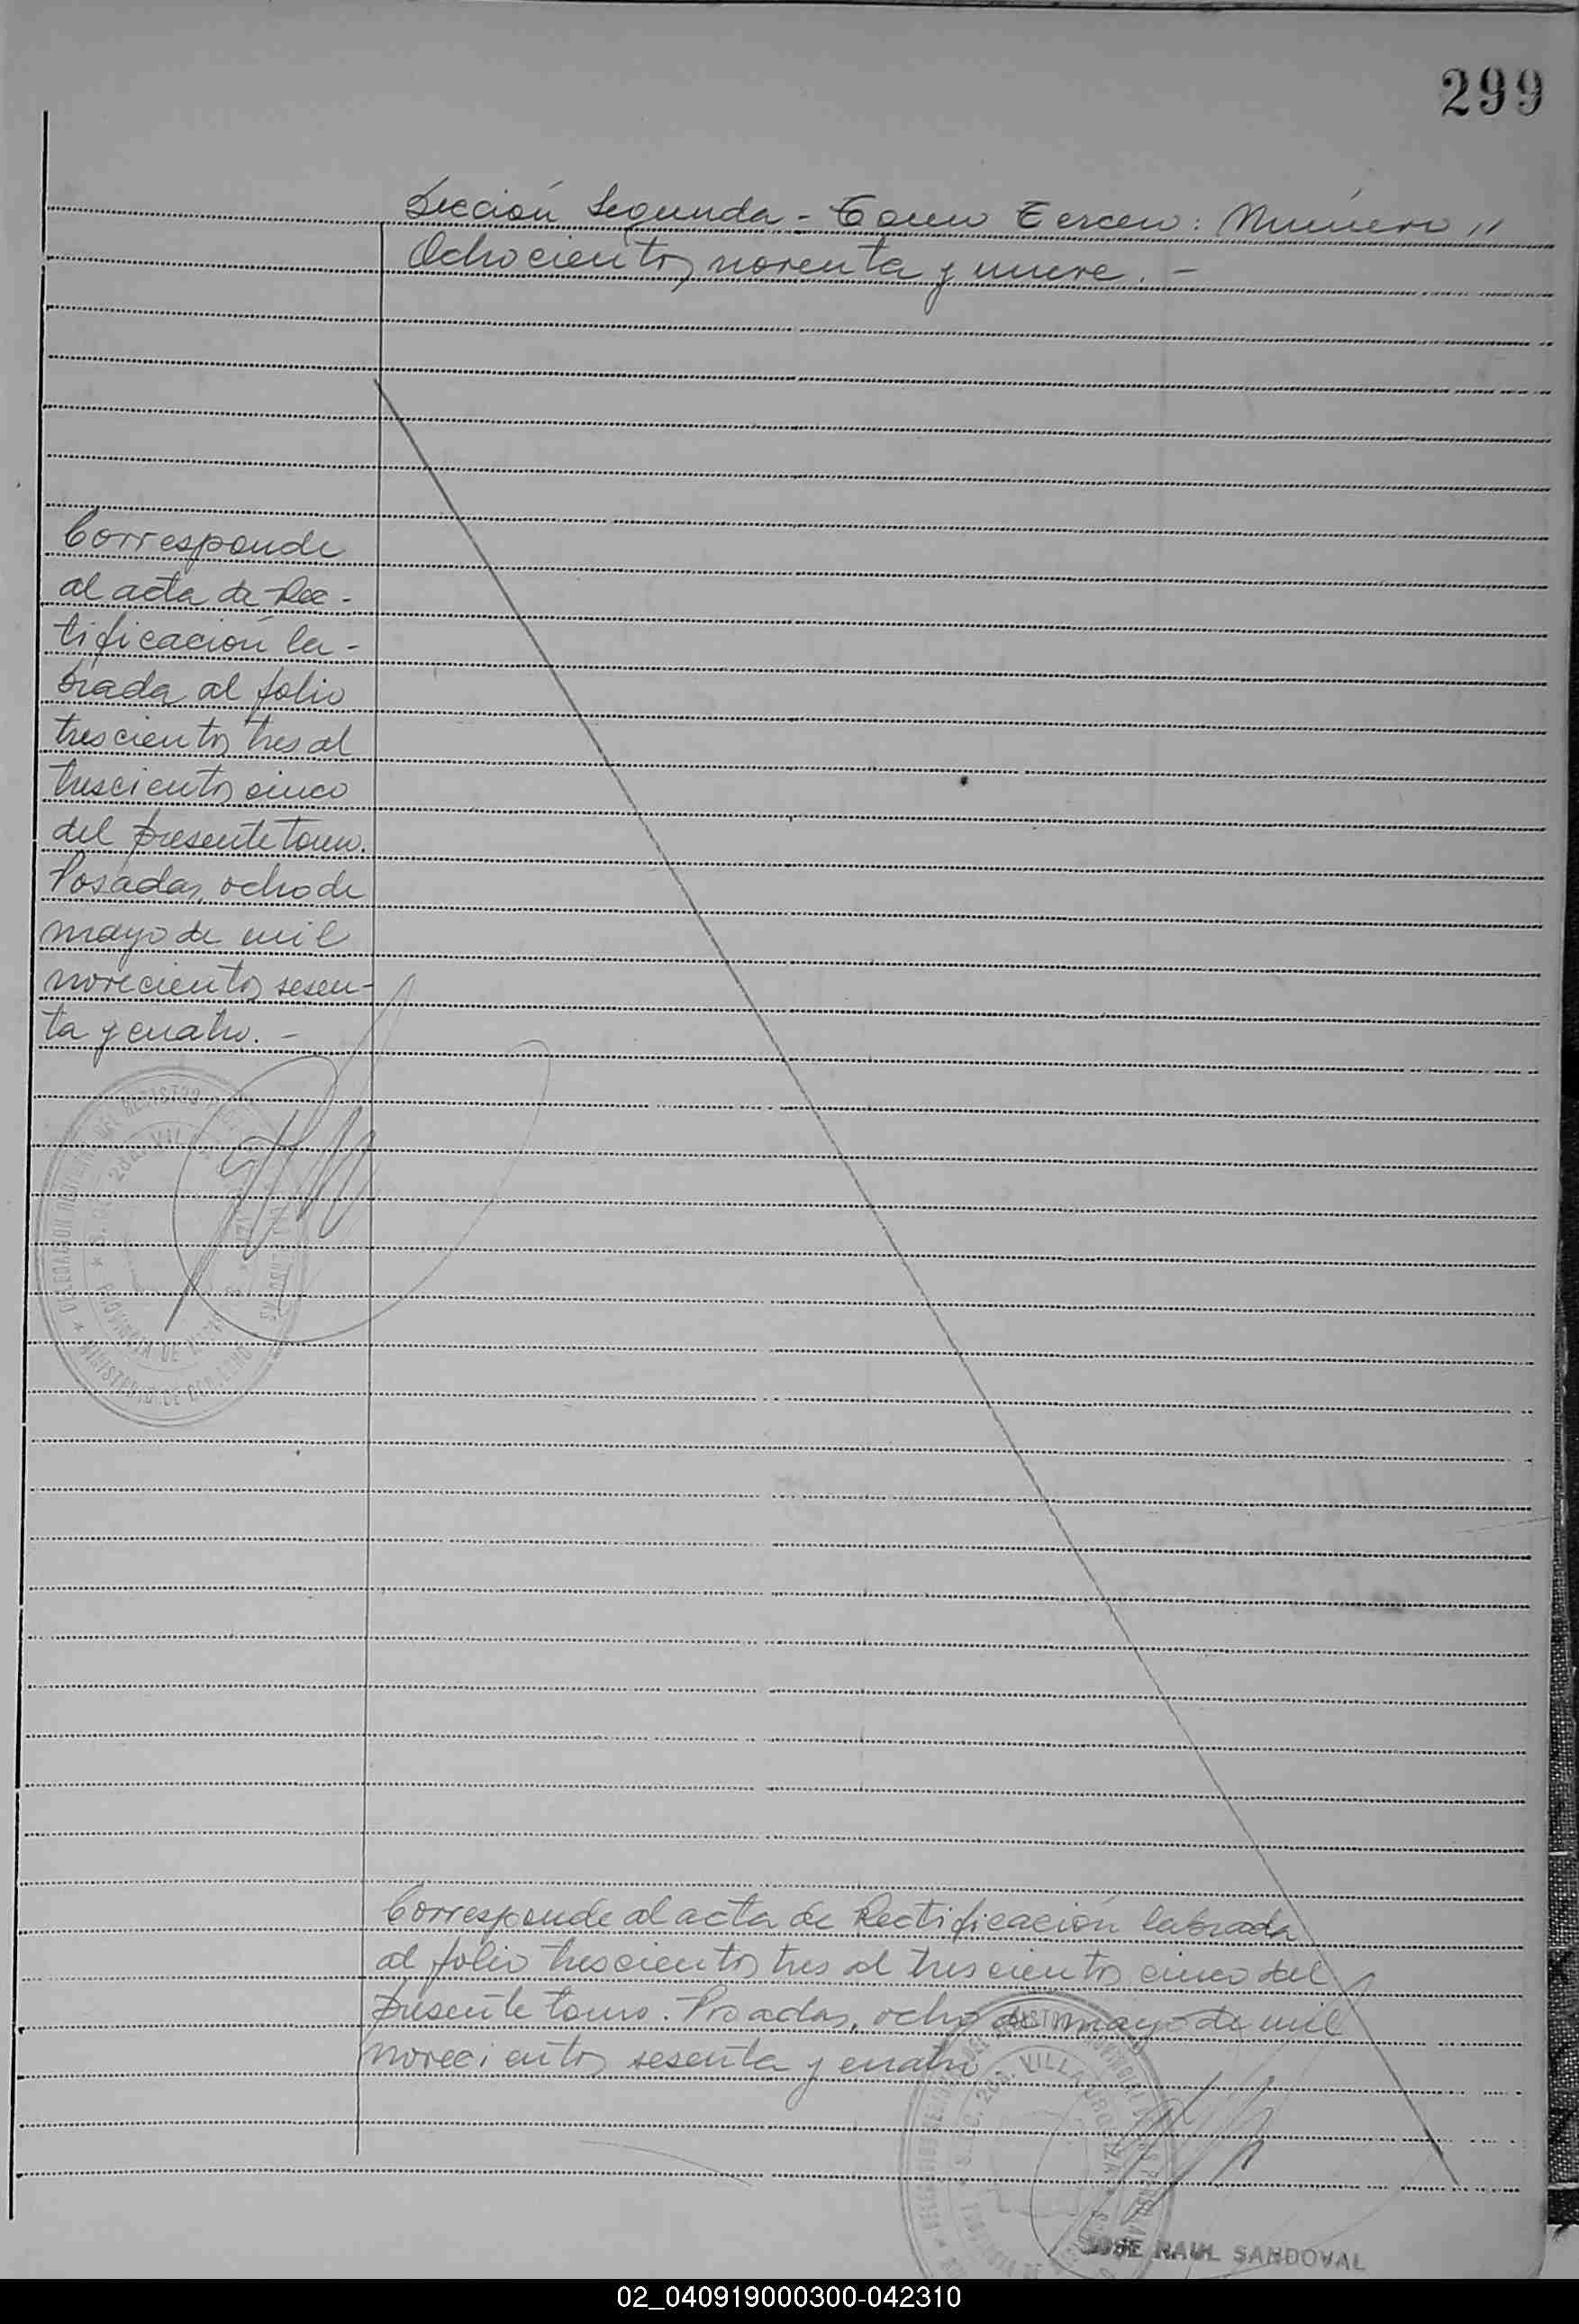 299
Sección Segunda - Tomo Tercero: Número "
Ochocientos noventa y nueve. -
Corresponde
al acta de Rec-
tificación la-
brada al folio
trescientos tres al
trescientos cinco
del presente tomo.
Posadas, ocho de
mayo de mil
novecientos sesen-
ta y cuatro. -
Corresponde al acta de Rectificación labrada
al folio trescientos tres al trescientos cinco del
presente tomo. Posadas, ocho de mayo de mil
novecientos sesenta y cuatro
JOSE RAUL SANDOVAL
02_040919000300-042310